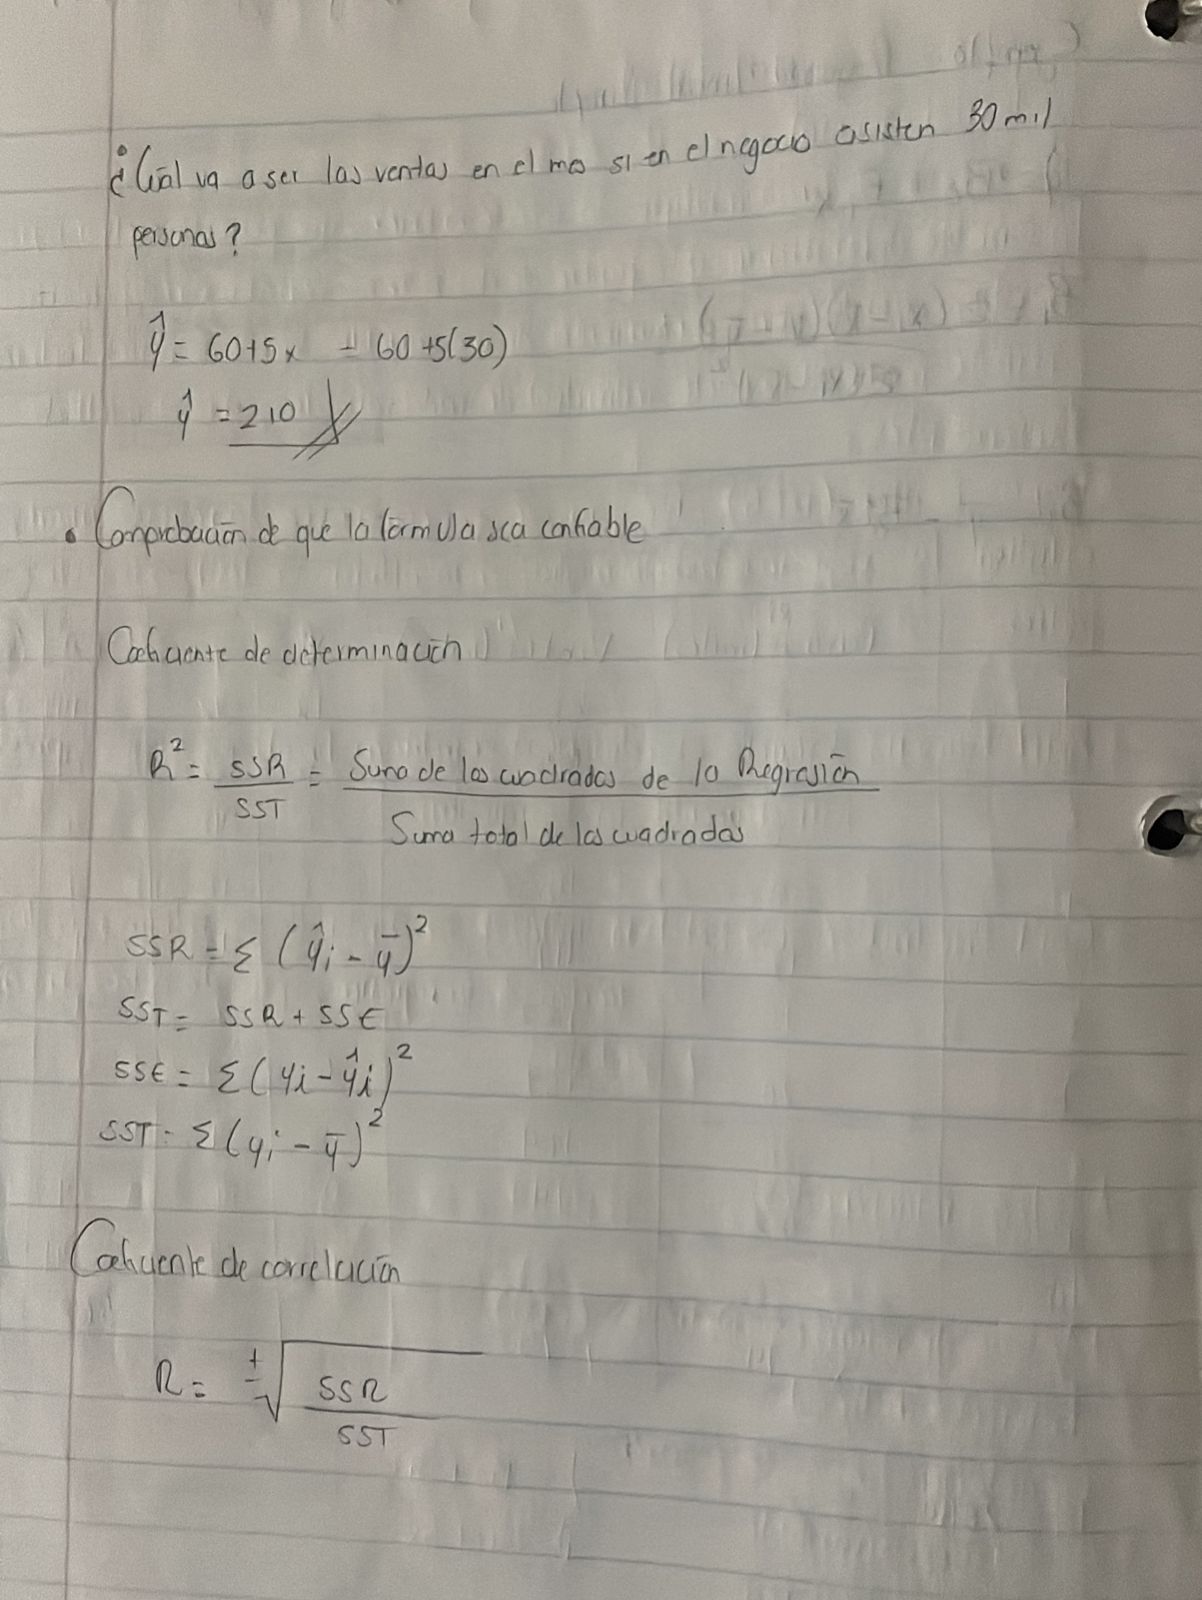 ¿Cuál va a ser las ventas en el mes si en el negocio asisten 30 mil
personas?
ŷ = 60+5x = 60+5(30)
ŷ = 210
• Comprobación de que la fórmula sea confiable
Coeficiente de determinación
R² = SSR/SST = Suma de los cuadrados de la Regresión / Suma total de los cuadrados
SSR = Σ (ŷi - ȳ)²
SST = SSR + SSE
SSE = Σ (yi - ŷi)²
SST = Σ (yi - ȳ)²
Coeficiente de correlación
R = ±√(SSR/SST)